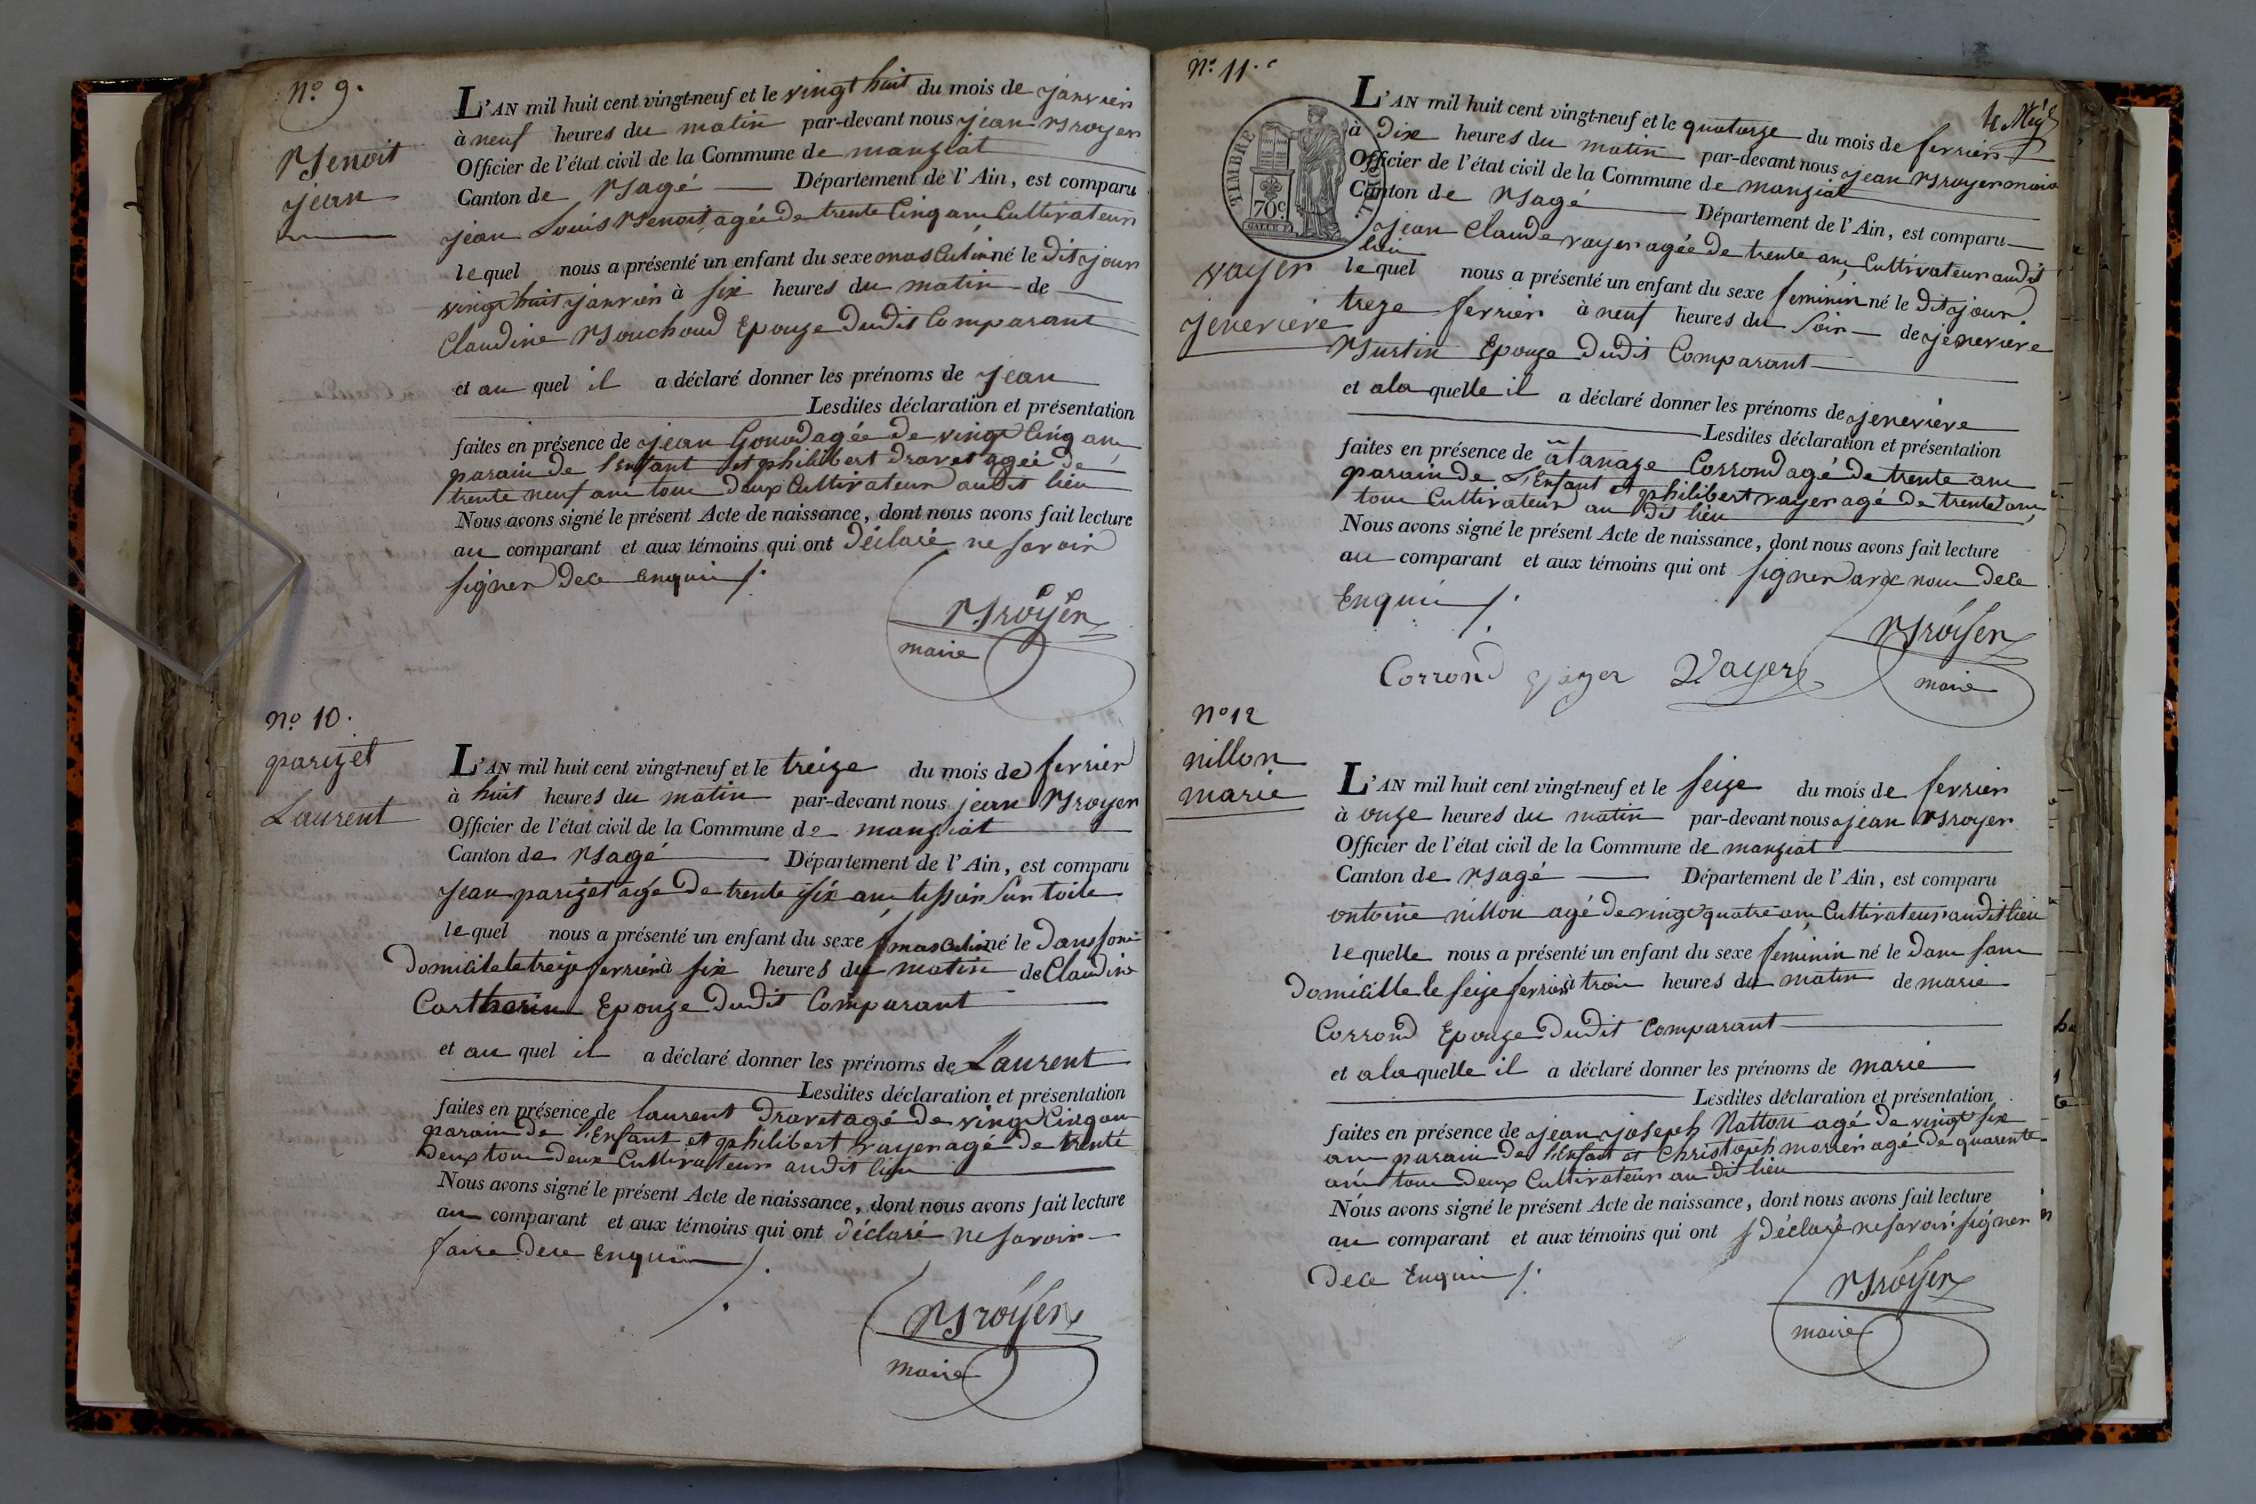 N.º 9.
Benoit
jean
L'AN mil huit cent vingt-neuf et le vingt huit du mois de janvier
à neuf heures du matin par-devant nous jean Broyer
Officier de l'état civil de la Commune de manziat
Canton de Bagé Département de l'Ain, est comparu
jean Louis Benoit, agée de trente Cinq ans Cultivateur
lequel nous a présenté un enfant du sexe masculin né le dit jour
vingt huit janvier à six heures du matin de
Claudine Bouchoud Epouze dudit Comparant
et au quel il a déclaré donner les prénoms de jean
Lesdites déclaration et présentation
faites en présence de jean Gonod agée de vingt Cinq ans
parain de l'Enfant et philibert dravet agée de
trente neuf ans tous deux Cultivateurs audit lieu
Nous avons signé le présent Acte de naissance, dont nous avons fait lecture
au comparant et aux témoins qui ont déclaré ne savoir
signer dece enquis /.
Broyer
maire
N.º 10.
parizet
Laurent
L'AN mil huit cent vingt-neuf et le treize du mois de fevrier
à huit heures du matin par-devant nous jean Broyer
Officier de l'état civil de la Commune de manziat
Canton de Bagé Département de l'Ain, est comparu
jean parizet agé de trente six ans tissier sur toile
lequel nous a présenté un enfant du sexe masculin né le dans son
domicile le treize fevrier à six heures du matin de Claudine
Cartherin Epouze dudit Comparant
et au quel il a déclaré donner les prénoms de Laurent
Lesdites déclaration et présentation
faites en présence de laurent dravet agé de vingt Cinq ans
parain de l'Enfant et philibert vayer agé de trente
deux tous deux Cultivateurs audit lieu
Nous avons signé le présent Acte de naissance, dont nous avons fait lecture
au comparant et aux témoins qui ont déclaré ne savoir
faire dece enquis /.
Broyer
maire
N.º 11.
TIMBRE ROYAL
70c
vayer
jenevieve
L'AN mil huit cent vingt-neuf et le quatorze du mois de fevrier
à Dix heures du matin par-devant nous jean Broyer maire
Officier de l'état civil de la Commune de manziat
Canton de Bagé Département de l'Ain, est comparu
jean Claude vayer agée de trente ans Cultivateur audit
lieu
lequel nous a présenté un enfant du sexe feminin né le dit jour
treze fevrier à neuf heures du soir de jenevieve
Burtin Epouze dudit Comparant
et ala quelle il a déclaré donner les prénoms de jenevieve
Lesdites déclaration et présentation
faites en présence de atanaze Corrond agé de trente ans
parain de L'Enfant et philibert vayer agé de trente ans
tous Cultivateurs au dit lieu
Nous avons signé le présent Acte de naissance, dont nous avons fait lecture
au comparant et aux témoins qui ont signer avec nous dece
Enquis /.
Broyer
maire
Corrond vayer Vayer
N.º 12
nillon
marie
L'AN mil huit cent vingt-neuf et le seize du mois de fevrier
à onze heures du matin par-devant nous jean Broyer
Officier de l'état civil de la Commune de manziat
Canton de Bagé Département de l'Ain, est comparu
antoine nillon agé de vingt quatre ans Cultivateur audit lieu
lequelle nous a présenté un enfant du sexe feminin né le dans sont
domicille le seize fevrier à trois heures du matin de marie
Corrond Epouze dudit Comparant
et ala quelle il a déclaré donner les prénoms de marie
Lesdites déclaration et présentation
faites en présence de jean joseph Natton agé de vingt six
ans parain de l'Enfant et Christoph morier agé de quarente
ans tous deux Cultivateurs au dit lieu
Nous avons signé le présent Acte de naissance, dont nous avons fait lecture
au comparant et aux témoins qui ont déclaré ne savoir signer
dece Enquis /.
Broyer
maire